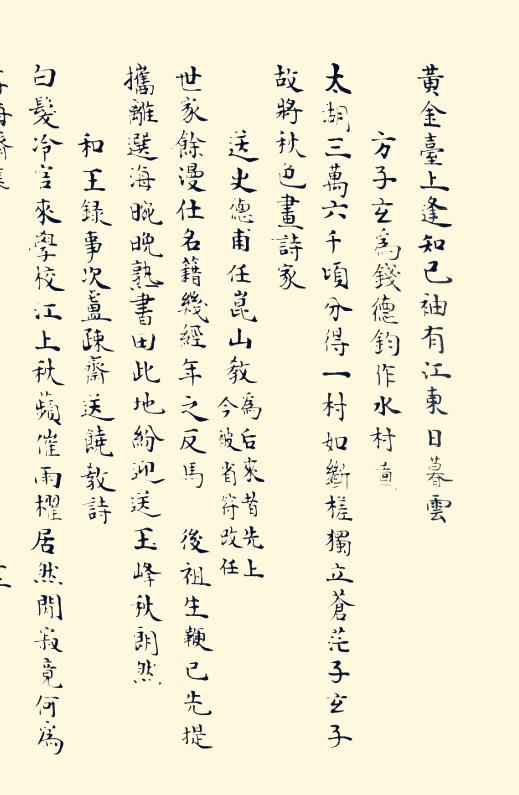 黃金臺上逢知己袖有江東日暮雲
方子玄為錢德鈞作水村
太湖三萬六千頃分得一村如斷槎獨立蒼茫子玄子
故將秋色畫詩家
送史德甫任崑山教為后來昔先上
今被省符改任
世家餘漫仕名籍幾經年之反馬 後祖生鞭已先提
攜離選海晼晚熟書田此地紛迎送玉峰秋朗然
和王録事次盧疎齋送饒教詩
白髮冷官來學校江上秋蘋催雨櫂居然閒寂竟何為